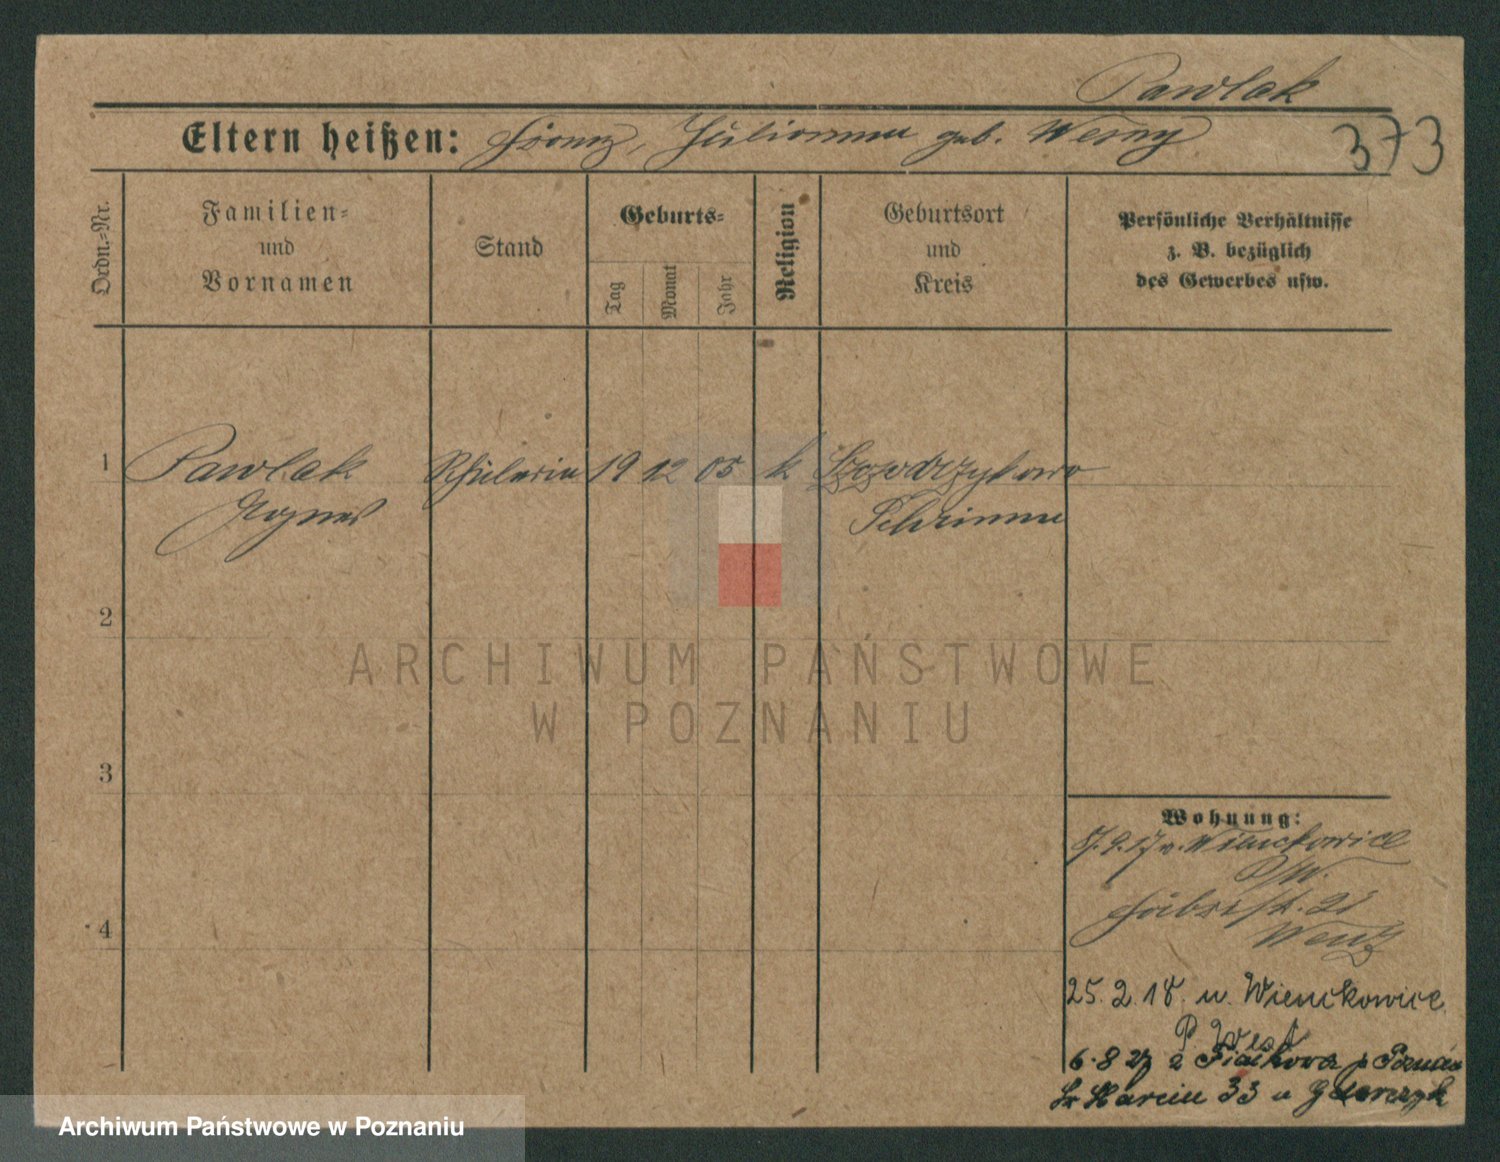 Pawlak
Eltern heißen: Franz, Julianna geb. Werny
373
Ordn.-Nr.
Familien-
und
Vornamen
Stand
Geburts-
Tag
Monat
Jahr
Religion
Geburtsort
und
Kreis
Persönliche Verhältnisse
z. B. bezüglich
des Gewerbes usw.
1
Pawlak
Agnes
Schülerin
19
12
05
k
Schrimm
2
3
4
Wohnung:
Wienckowice
P/W.
25. 2. 18. n. Wienckowice
P. West
6.8 27 z p Poznań
Św Marcin 33 u
ARCHIWUM PAŃSTWOWE
W POZNANIU
Archiwum Państwowe w Poznaniu